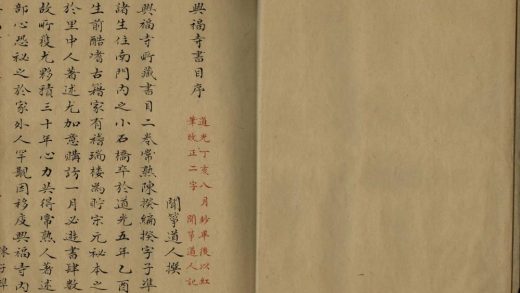 興福寺書目序
道光丁亥八月鈔畢後以紅
筆改正二字 聞箏道人記
聞箏道人撰
興福寺所藏書目二卷常熟陳揆編揆字子準
諸生住南門內之小石橋卒於道光五年乙酉
生前酷嗜古籍家有稽瑞樓為貯宋元秘本之
於里中人著述尤加意購訪一月必遊書肆數
故所獲尤夥積三十年心力共得常熟人著述
部心恐秘之於家外人罕覯因移庋興福寺內
陳子準